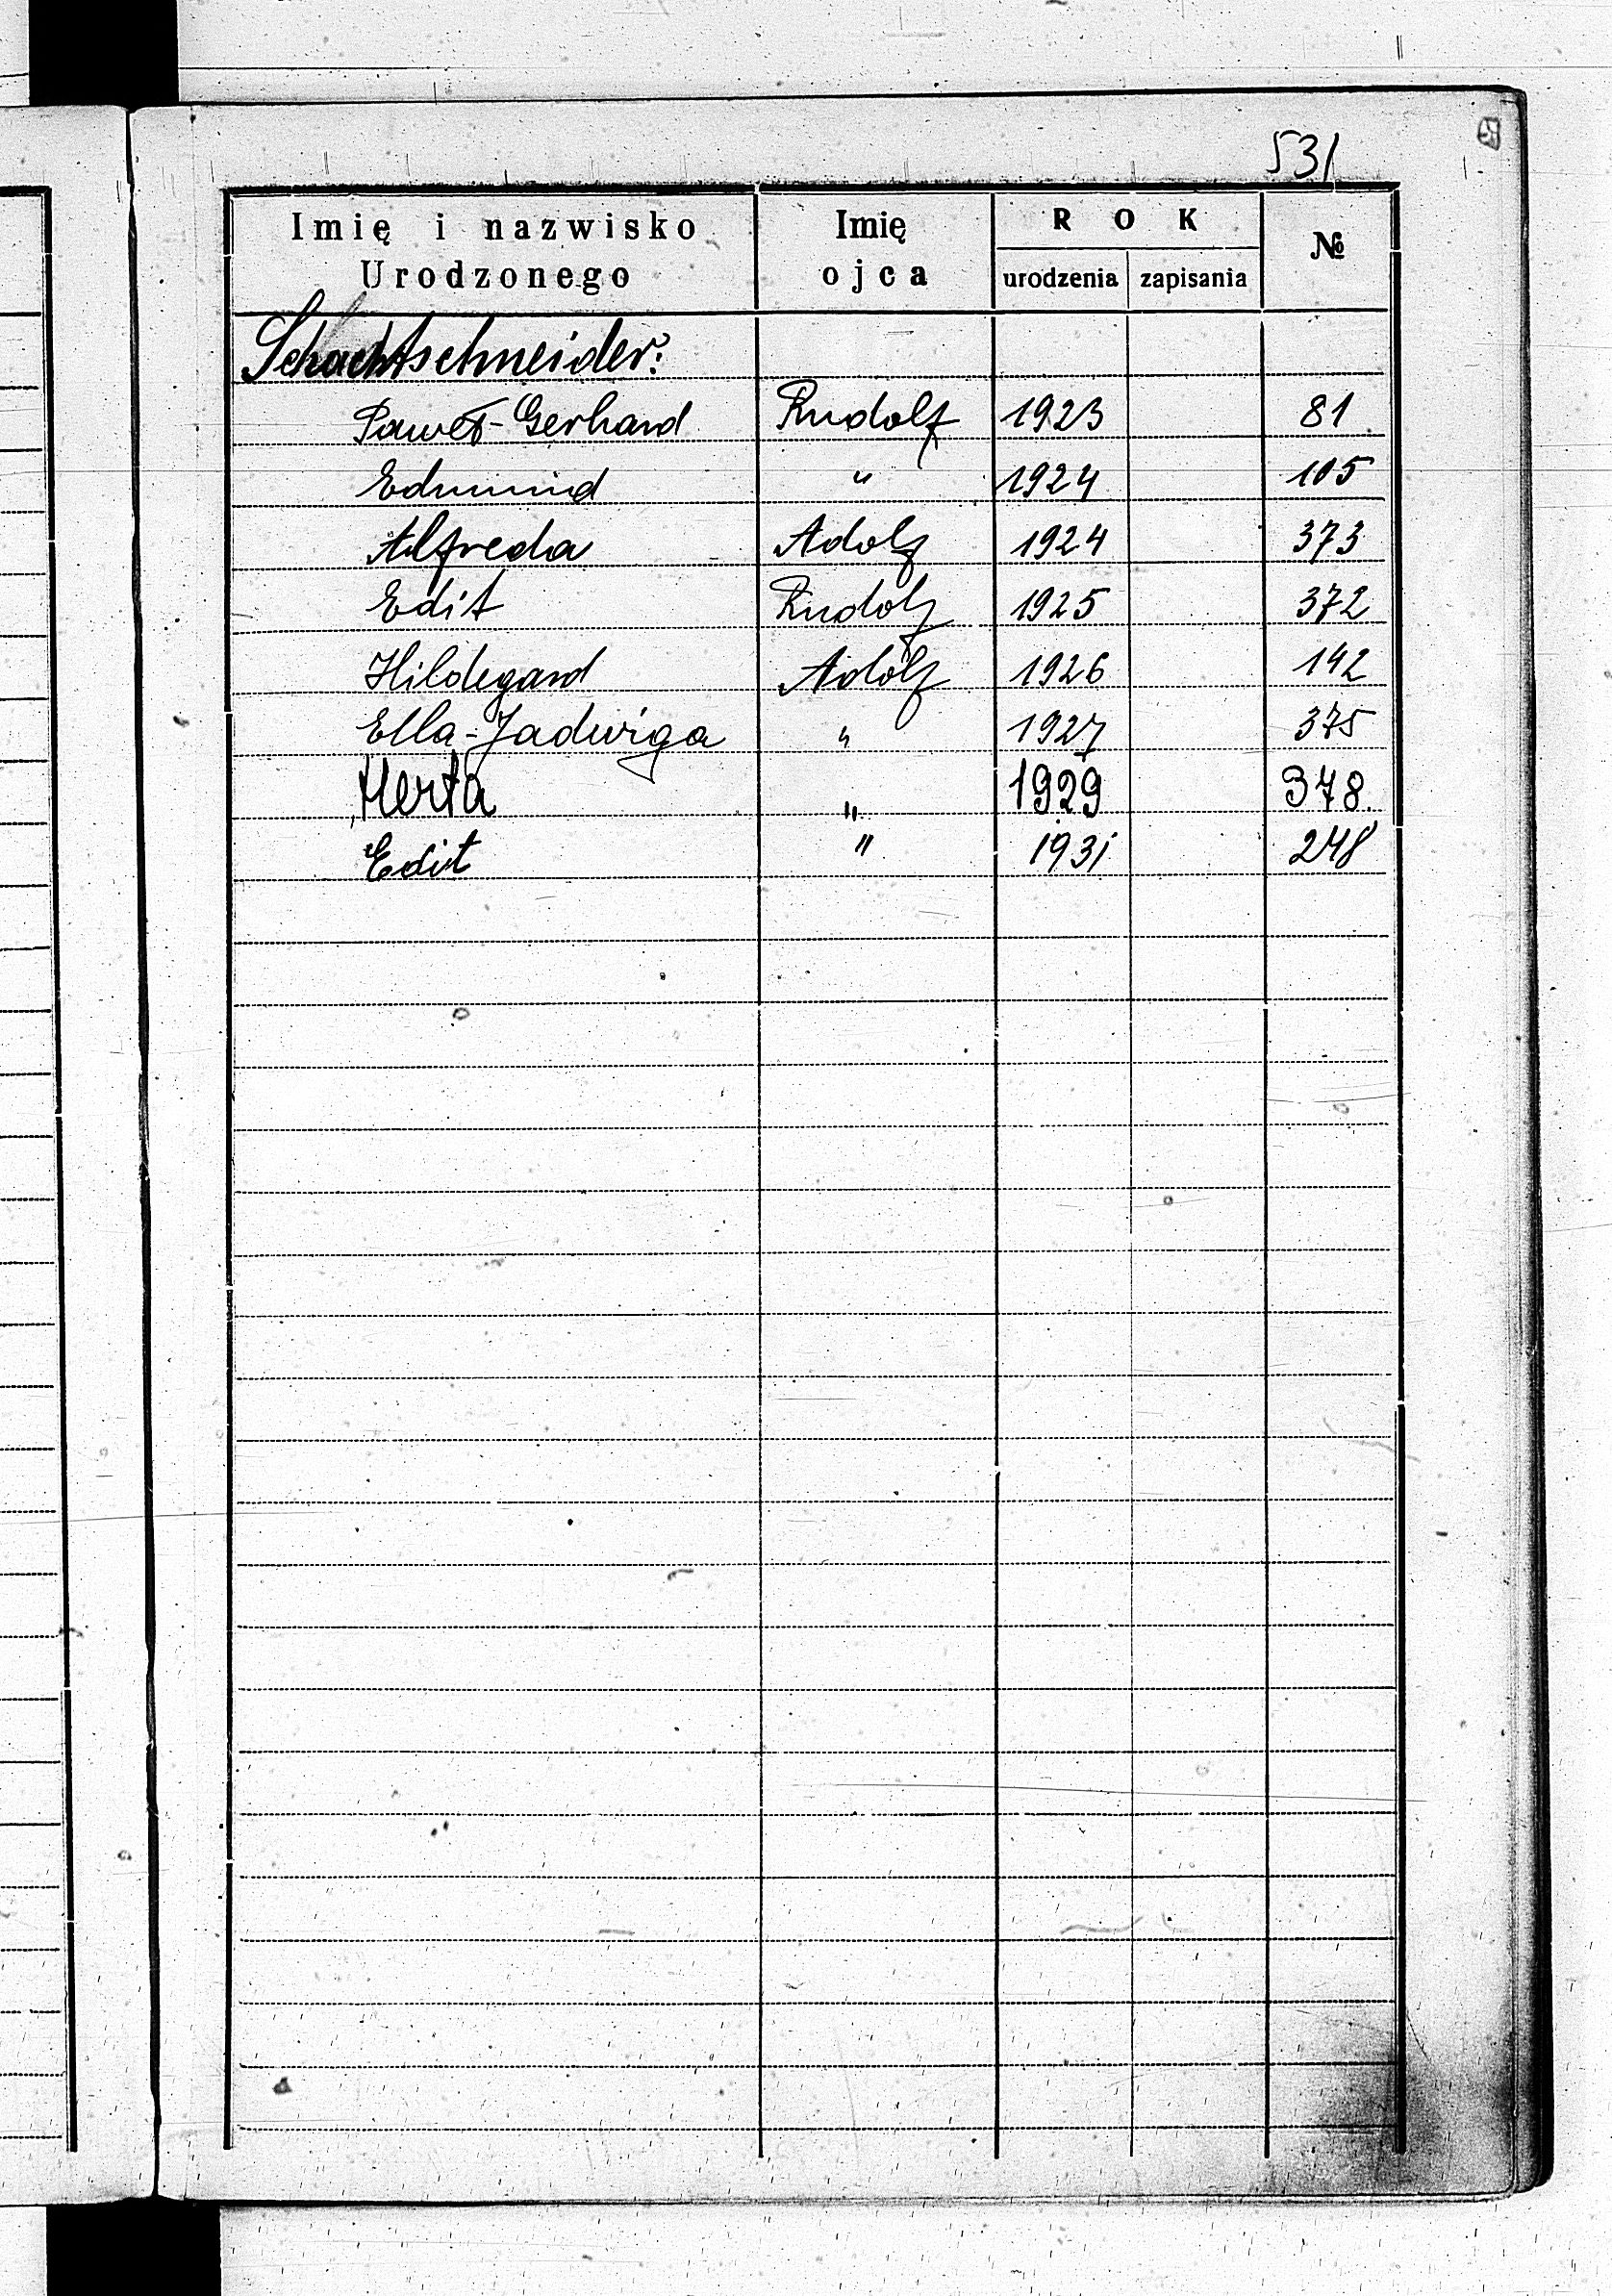 531
Imię i nazwisko Urodzonego Imię ojca ROK urodzenia zapisania №
Schachtschneider:
Paweł-Gerhard Rudolf 1923 81
Edmund " 1924 105
Alfreda Adolf 1924 373
Edit Rudolf 1925 372
Hildegard Adolf 1926 142
Ella-Jadwiga " 1927 375
Herta " 1929 378
Edit " 1931 248